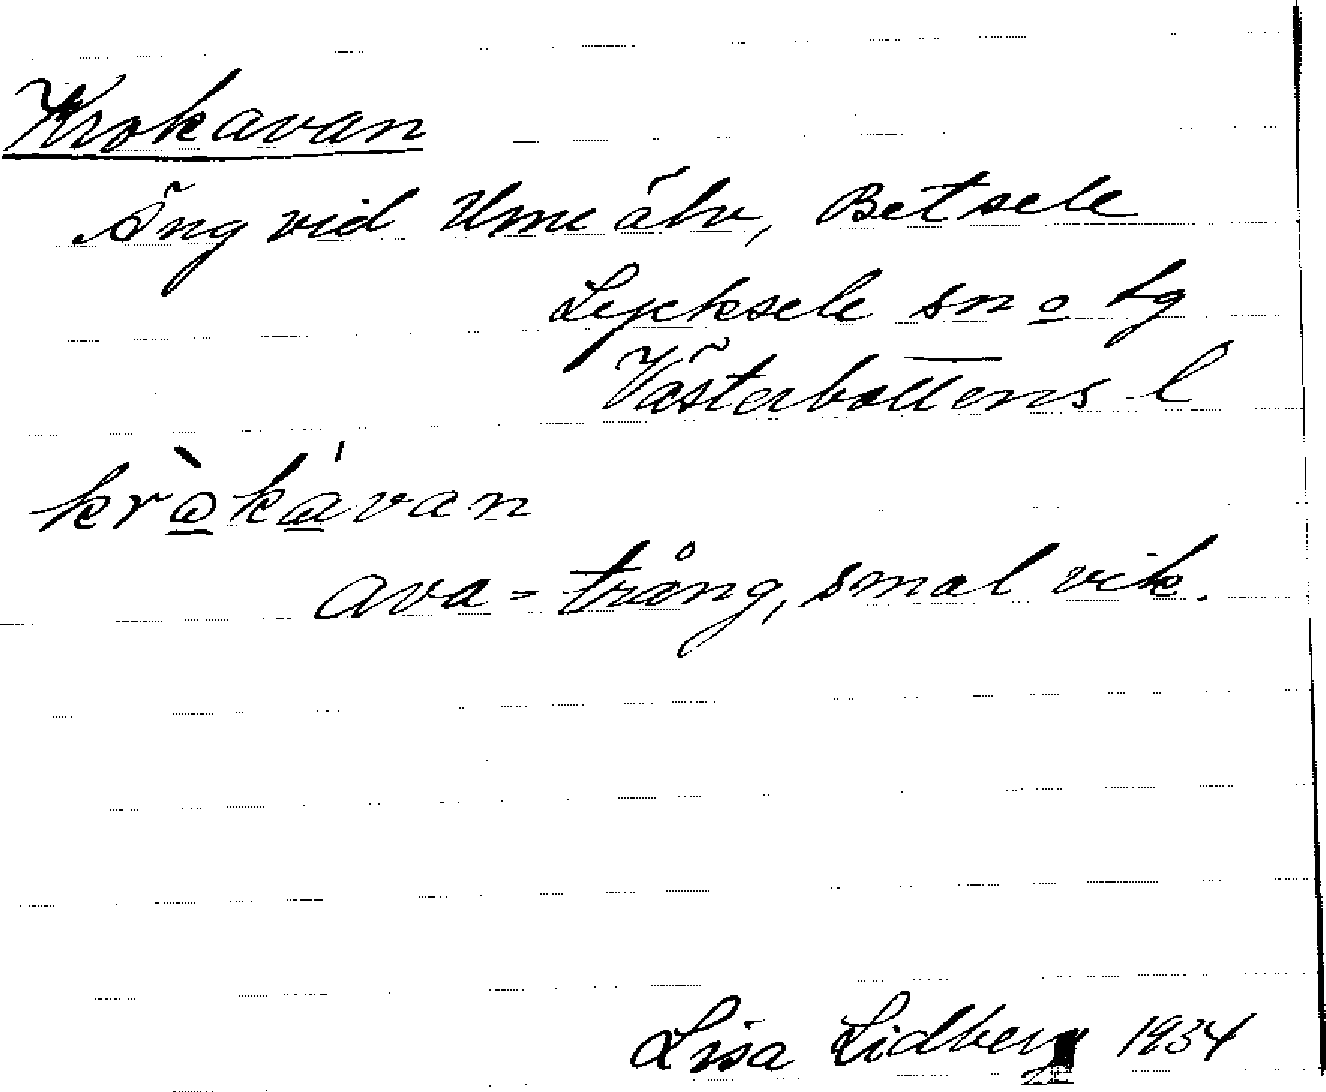 Krokavan
Äng vid Ume älv, Betsele
Lycksele sn o tg
Västerbottens l
kròkávan
ava = trång, smal vik.
Lisa Lidberg 1934